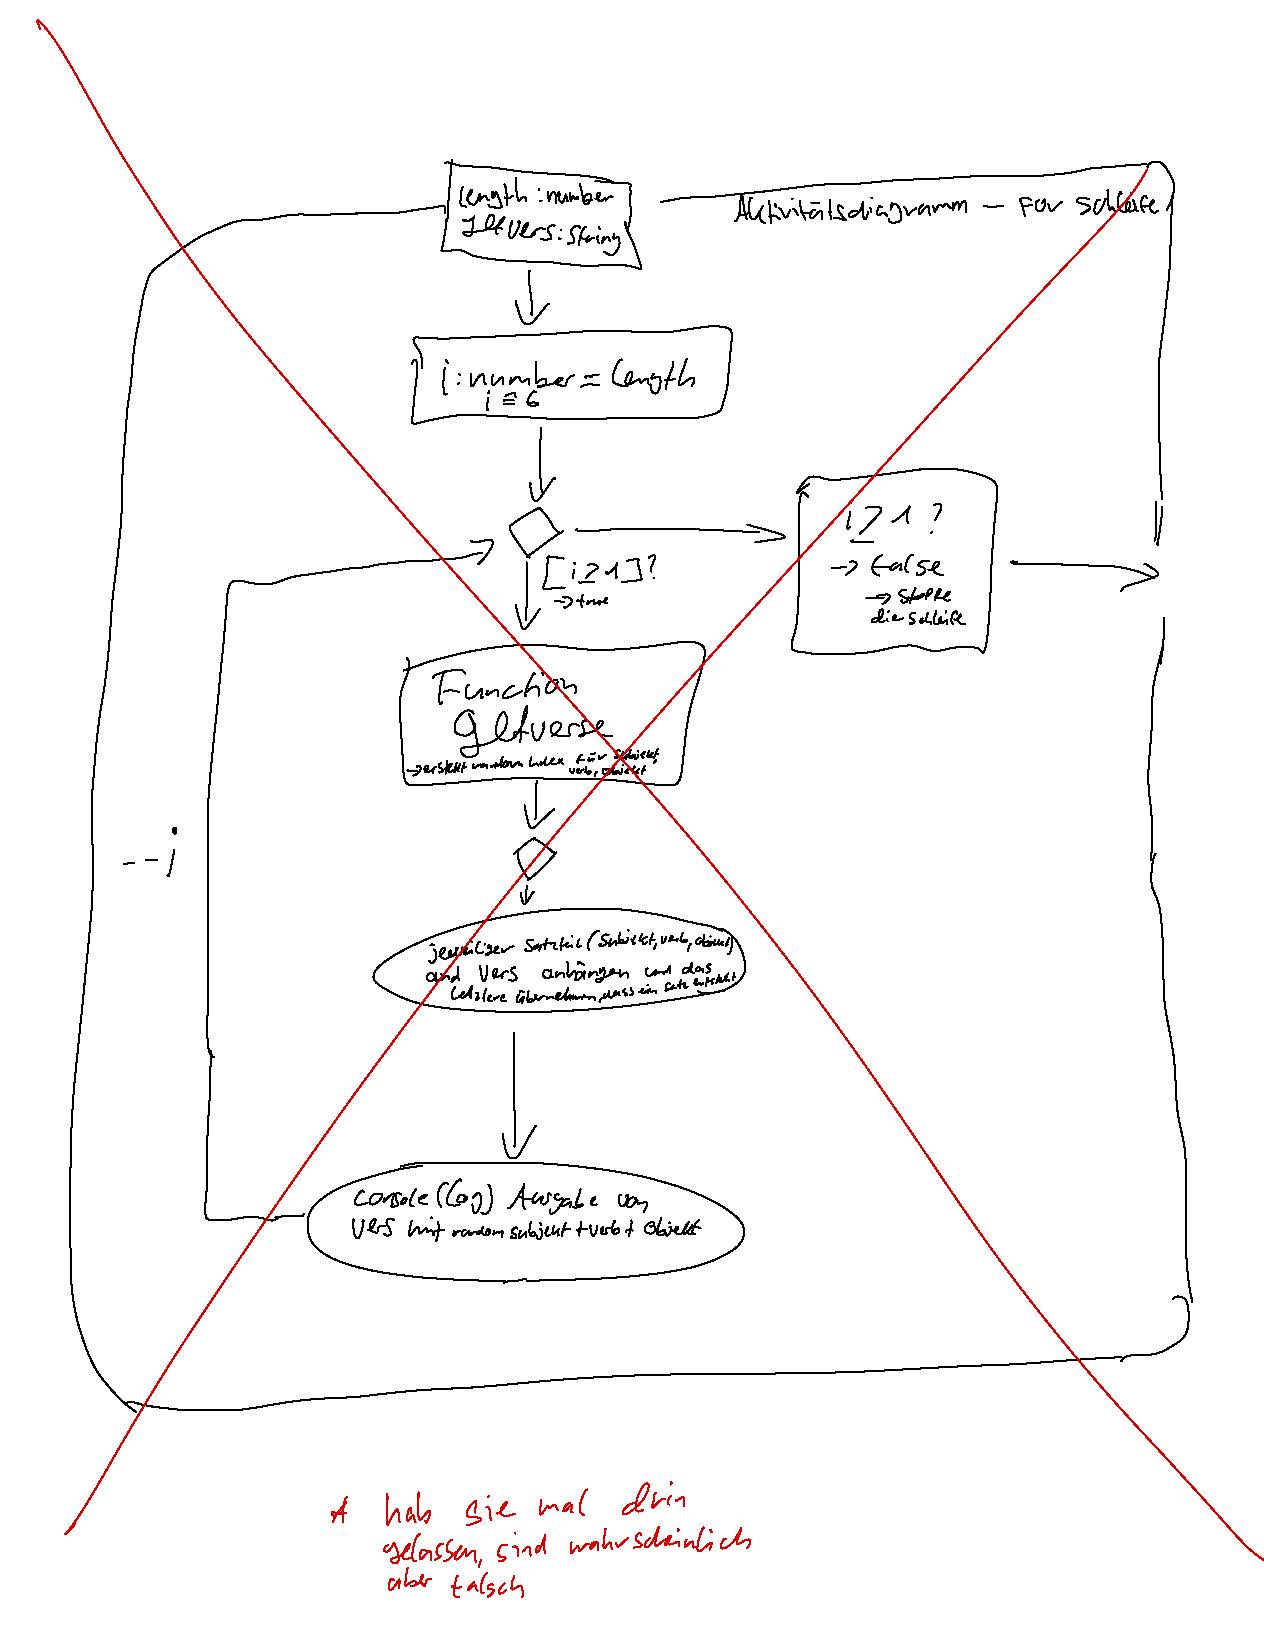 length : number
getVers : string
Aktivitätsdiagramm – For Schleife
i : number = length
i ≙ 6
[i ≥ 1]?
→ true
i ≥ 1 ?
→ false
→ stoppe
die Schleife
Function
getverse
→ erstellt random Index für Subjekt,
verb, Objekt
--i
jeweiliger Satzteil (Subjekt, verb, Objekt)
and Vers anhängen und das
letztere übernehmen, dass ein Satz entsteht
console (log) Ausgabe von
Vers mit random subjekt + verb + Objekt
hab sie mal drin
gelassen, sind wahrscheinlich
aber falsch